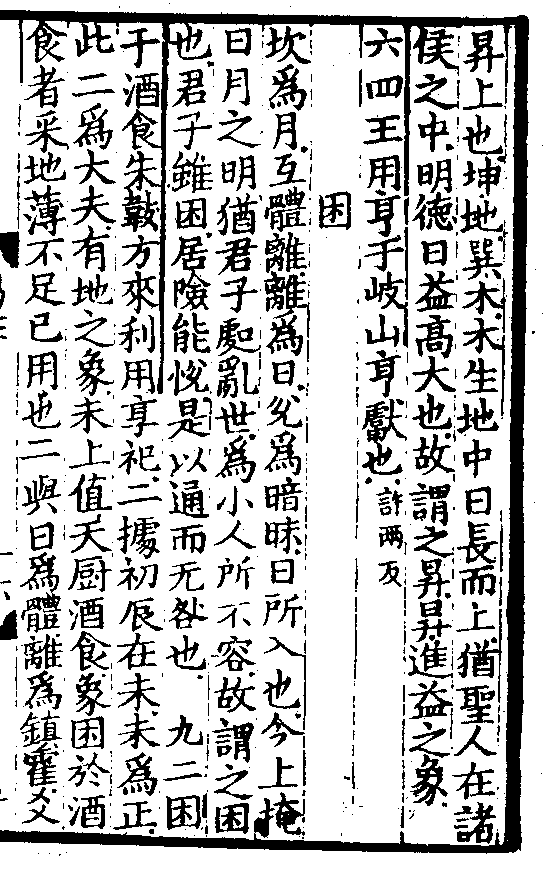 昇上也坤地巽木木生地中日長而上猶聖人在諸
侯之中明德日益高大也故謂之昇昇進益之象
六四王用亨于岐山亨獻也許兩反
困
坎爲月互體離離爲日兊爲暗昧日所入也今上掩
日月之明猶君子處亂世爲小人所不容故謂之困
也君子雖困居險能恱是以通而无咎也 九二困
于酒食朱韍方來利用享祀二據初辰在未未爲正
此二爲大夫有地之象未上值天厨酒食象困於酒
食者采地薄不足已用也二與日爲體離爲鎮霍爻